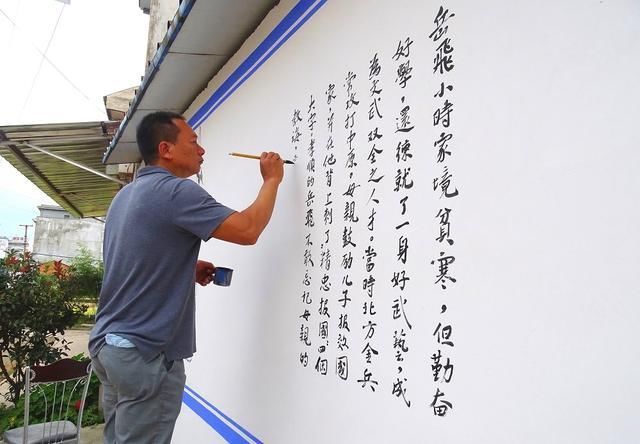 岳飛小時家境貧寒，但勤奋
好學，還練就了一身好武藝，成
為文武双全之人才。當時北方金兵
常攻打中原，母親鼓励儿子报效國
家，并在他背上刺了“精忠报國”四個
大字。孝順的岳飛不敢忘记母親的
教诲，